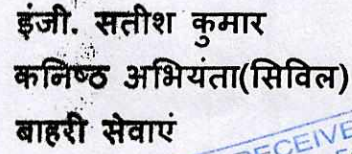 इंजी. सतीश कुमार
कनिष्ठ अभियंता(सिविल)
बाहरी सेवाएं
RECEIVE